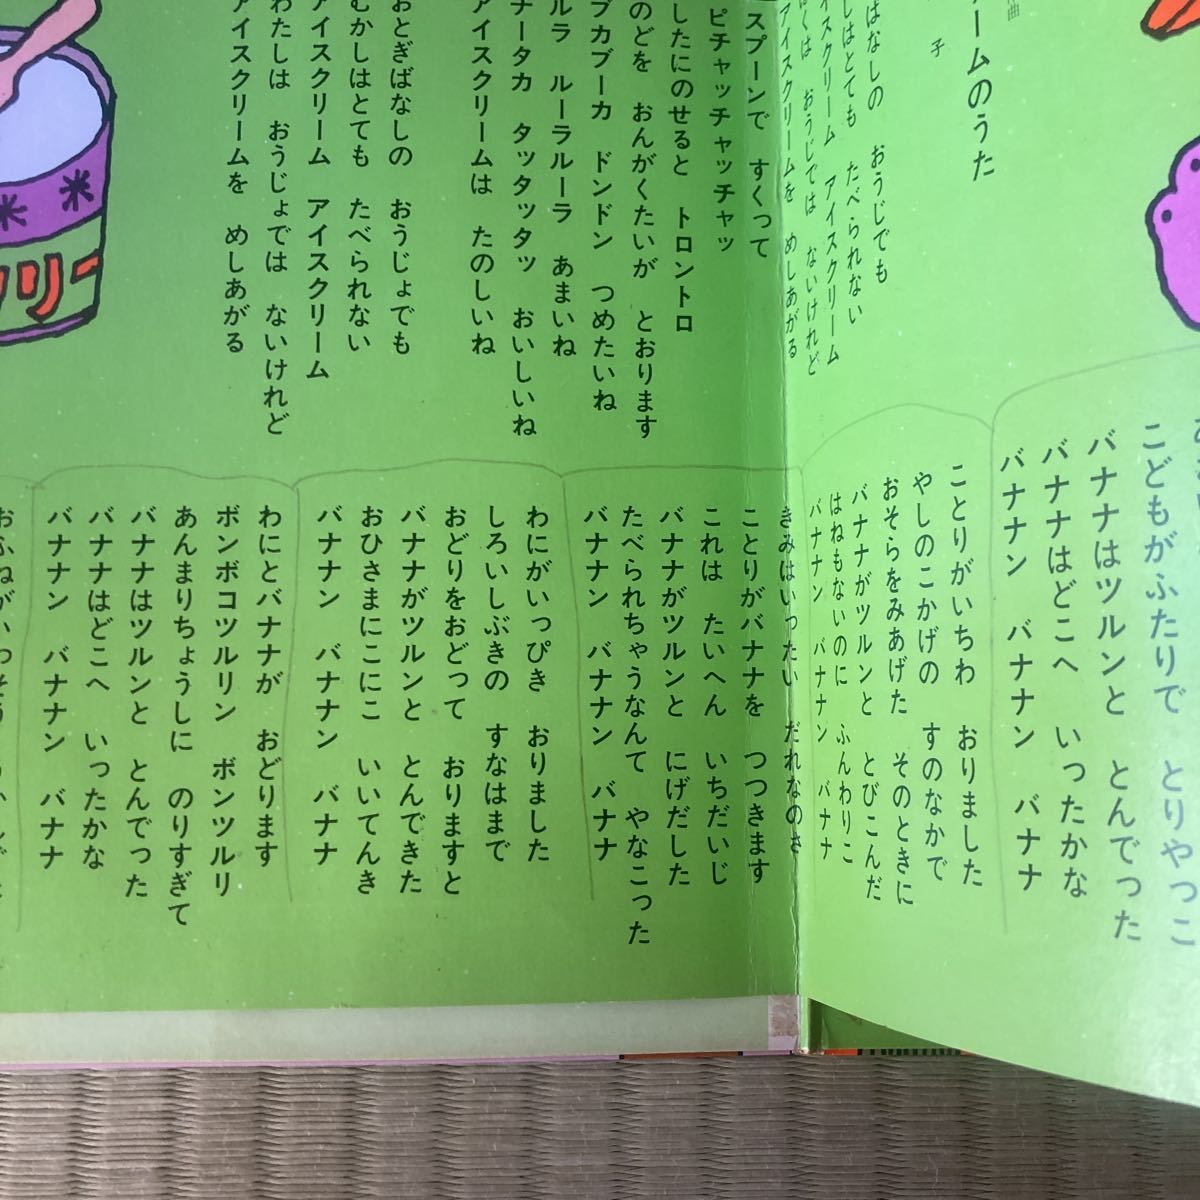 ームのうた
曲
子
おうじでも
しはとても　たべられない
イスクリーム　アイスクリーム
ぼくは　おうじでは　ないけれど
アイスクリームを　めしあがる
スプーンで　すくって
ピチャッチャッチャッ
したにのせると　トロントロ
のどを　おんがくたいが　とおります
ブカブーカ　ドンドン　つめたいね
ルラ　ルーラルーラ　あまいね
ナータカ　タッタッタッ　おいしいね
アイスクリームは　たのしいね
おとぎばなしの　おうじょでも
むかしはとても　たべられない
アイスクリーム　アイスクリーム
わたしは　おうじょでは　ないけれど
アイスクリームを　めしあがる
こどもがふたりで　とりやっこ
バナナはツルンと　とんでった
バナナはどこへ　いったかな
バナナン　バナナン　バナナ
ことりがいちわ　おりました
やしのこかげの　すのなかで
おそらをみあげた　そのときに
バナナがツルンと　とびこんだ
はねもないのに　ふんわりこ
バナナン　バナナン　バナナ
きみはいったい　だれなのさ
ことりがバナナを　つつきます
これは　たいへん　いちだいじ
バナナがツルンと　にげだした
たべられちゃうなんて　やなこった
バナナン　バナナン　バナナ
わにがいっぴき　おりました
しろいしぶきの　すなはまで
おどりをおどって　おりますと
バナナがツルンと　とんできた
おひさまにこにこ　いいてんき
バナナン　バナナン　バナナ
わにとバナナが　おどります
ボンボコツルリン　ボンツルリ
あんまりちょうしに　のりすぎて
バナナはツルンと　とんでった
バナナはどこへ　いったかな
バナナン　バナナン　バナナ